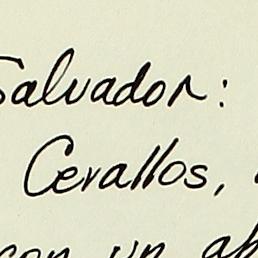 Salvador:
Cevallos,
con un ab